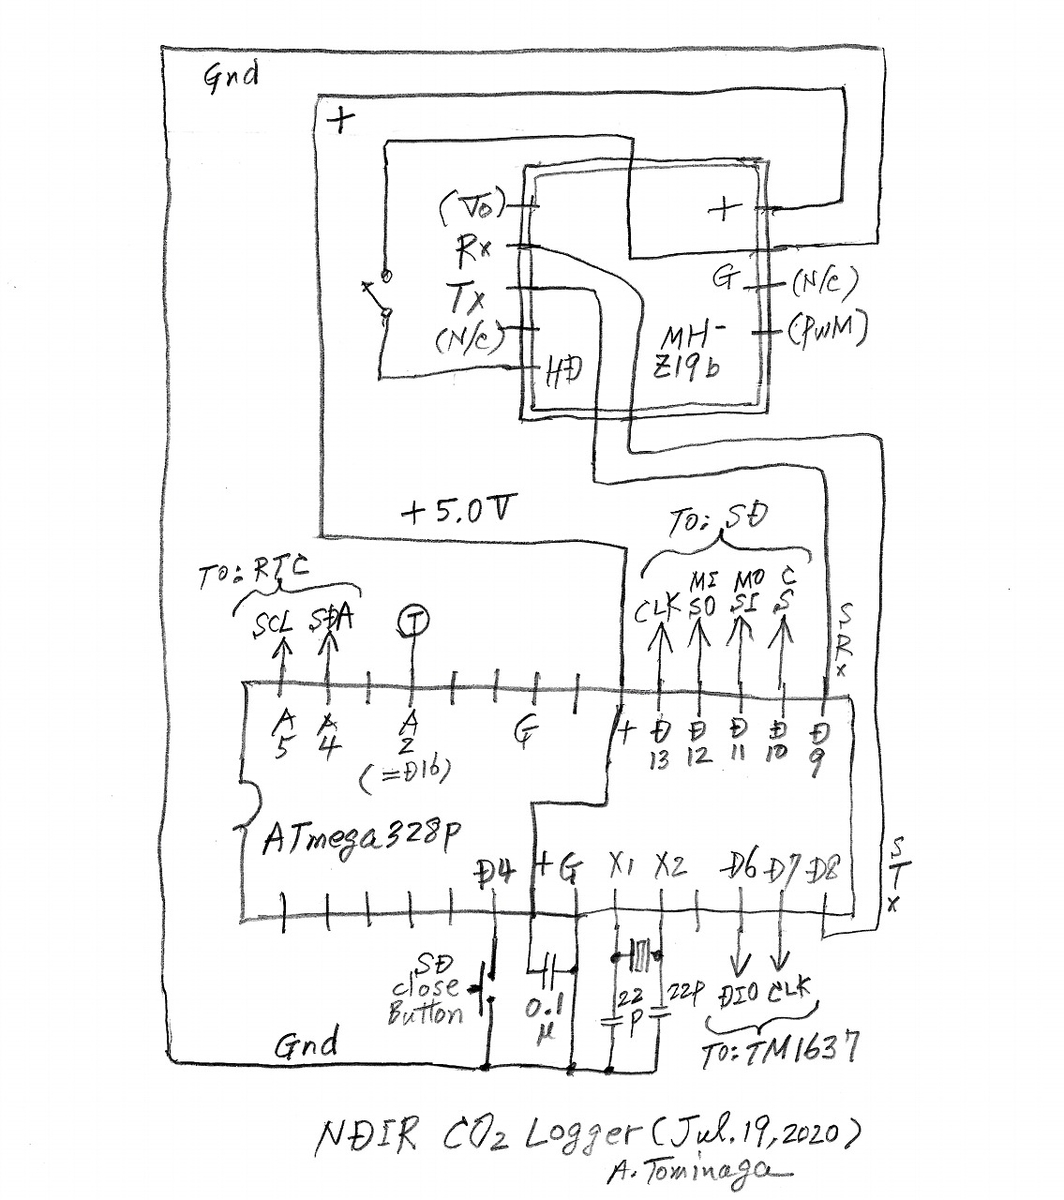 Gnd
+
(Vo)
+
Rx
G
(N/C)
Tx
(N/C)
MH-
Z19b
(PWM)
HD
+5.0V
To: SD
To: RTC
SCL
SDA
T
CLK
MI
SO
MO
SI
C
S
S
R
x
A
5
A
4
A
2
(=D16)
G
+
D
13
D
12
D
11
D
10
D
9
ATmega328p
D4
+
G
X1
X2
D6
D7
D8
S
T
x
SD
close
Button
0.1
μ
22
p
22p
DIO
CLK
To: TM1637
Gnd
NDIR CO2 Logger (Jul.19,2020)
A. Tominaga